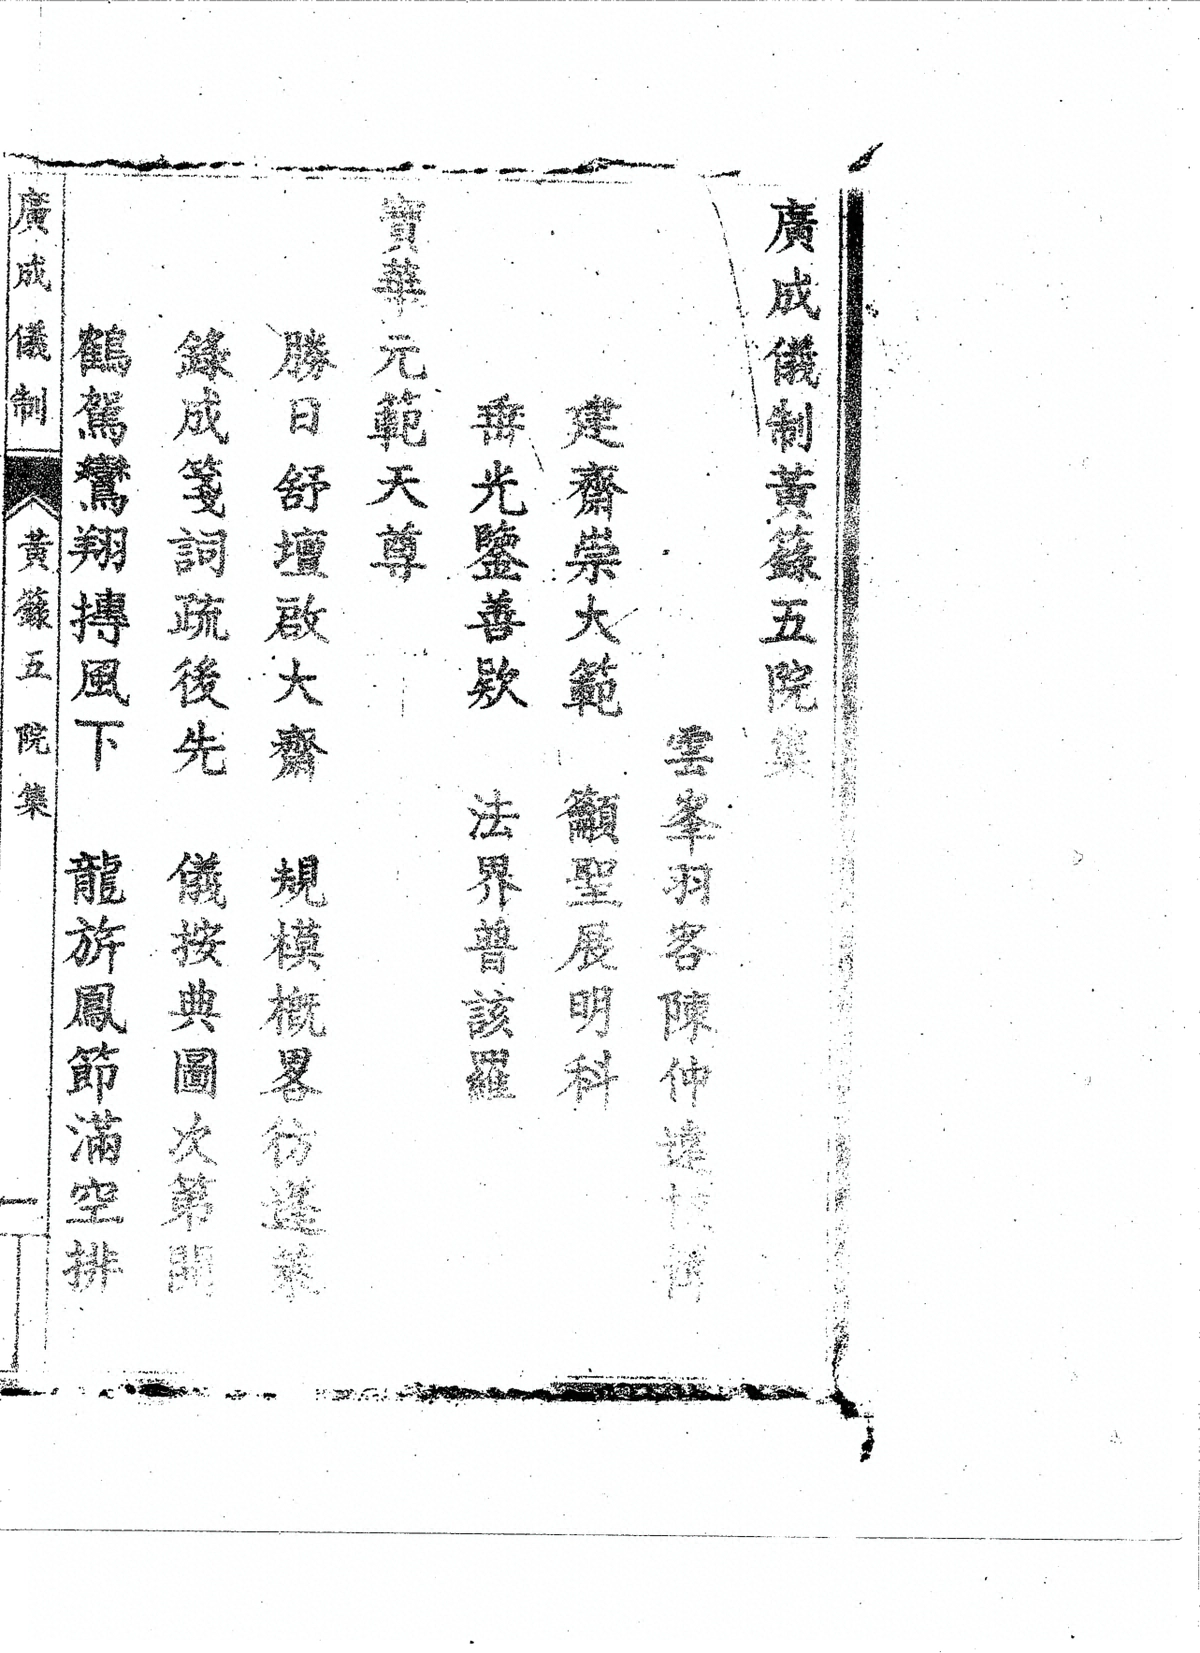 廣成儀制黃籙五院集
雲峯羽客陳仲遠校
建齋崇大範 籲聖展明科
垂光鑒善欵 法界普該羅
寶華元範天尊
勝日舒壇啟大齋 規模槪畧彷蓬萊
錄成箋詞疏後先 儀按典圖次第開
鶴駕鸞翔摶風下 龍旂鳳節滿空排
廣成儀制 黃籙五院集 一